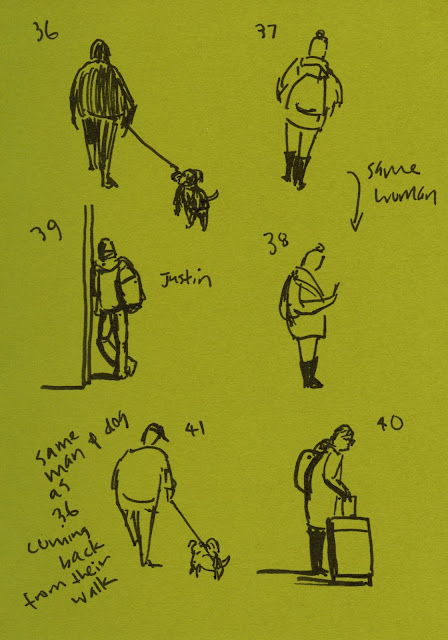 36
37
same
woman
39
Justin
38
41
40
same
man & dog
as
36
coming
back
from their
walk